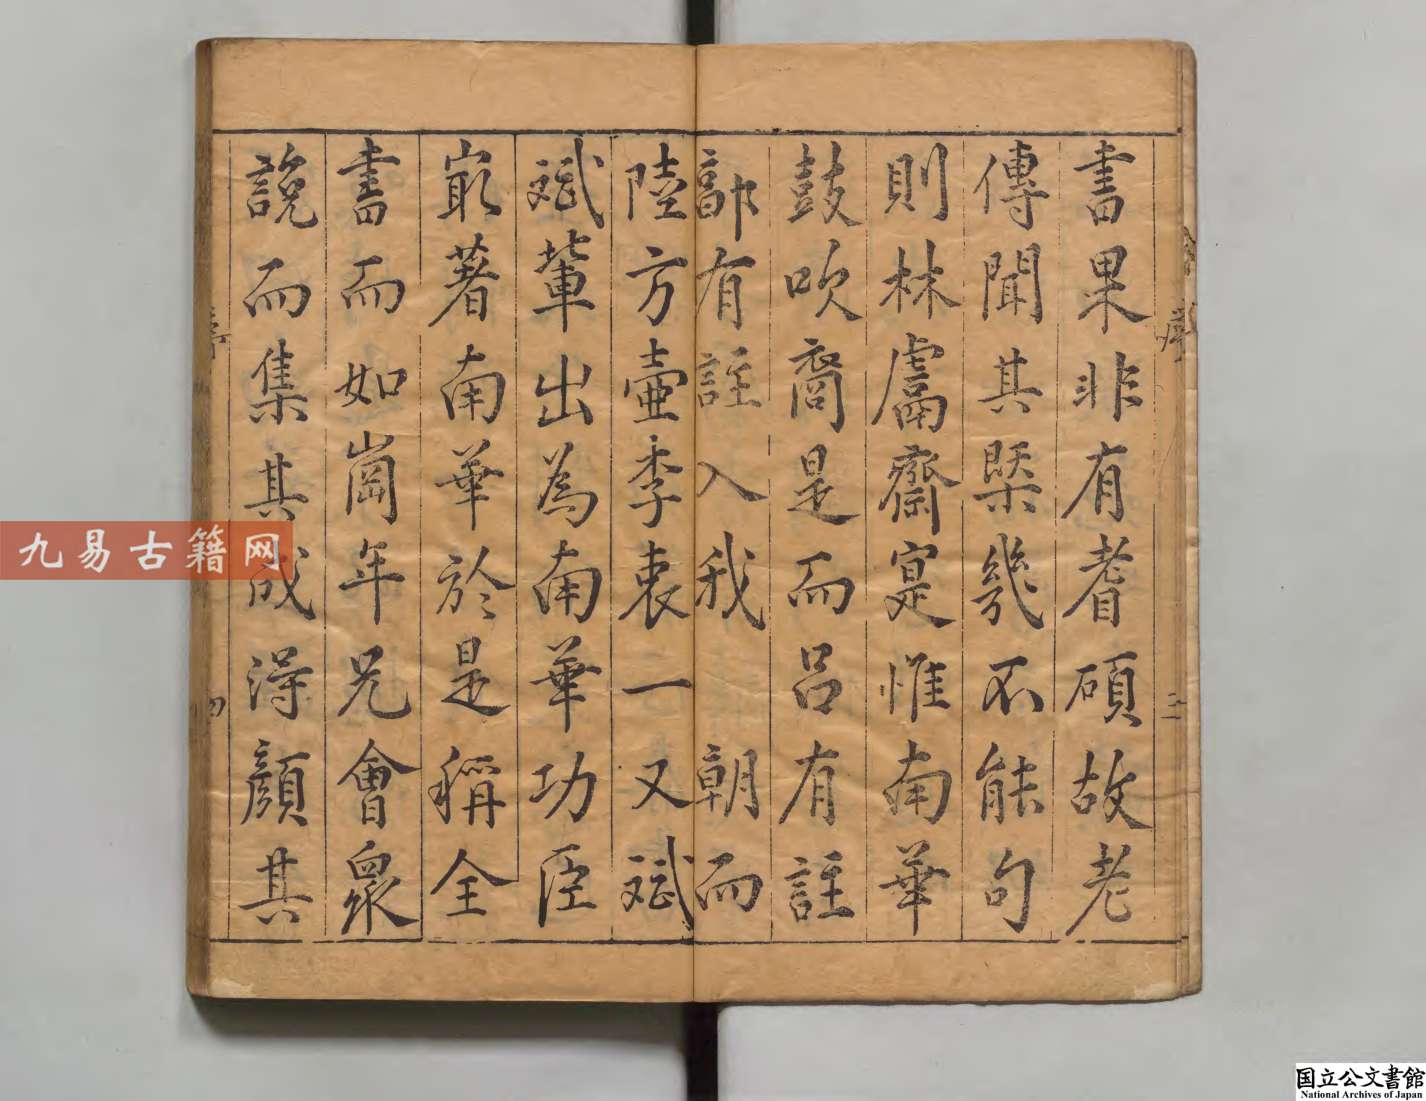 書果非有耆碩故老
傳聞其槩幾不能句
則林鬳齋寔惟南華
鼓吹裔是而呂有註
郭有註入我朝而
陸方壺李衷一又斌
斌輩出為南華功臣
冣著南華於是稱全
書而如崗年兄會眾
說而集其成淂顏其
序
三
序
四
九易古籍网
国立公文書館
National Archives of Japan